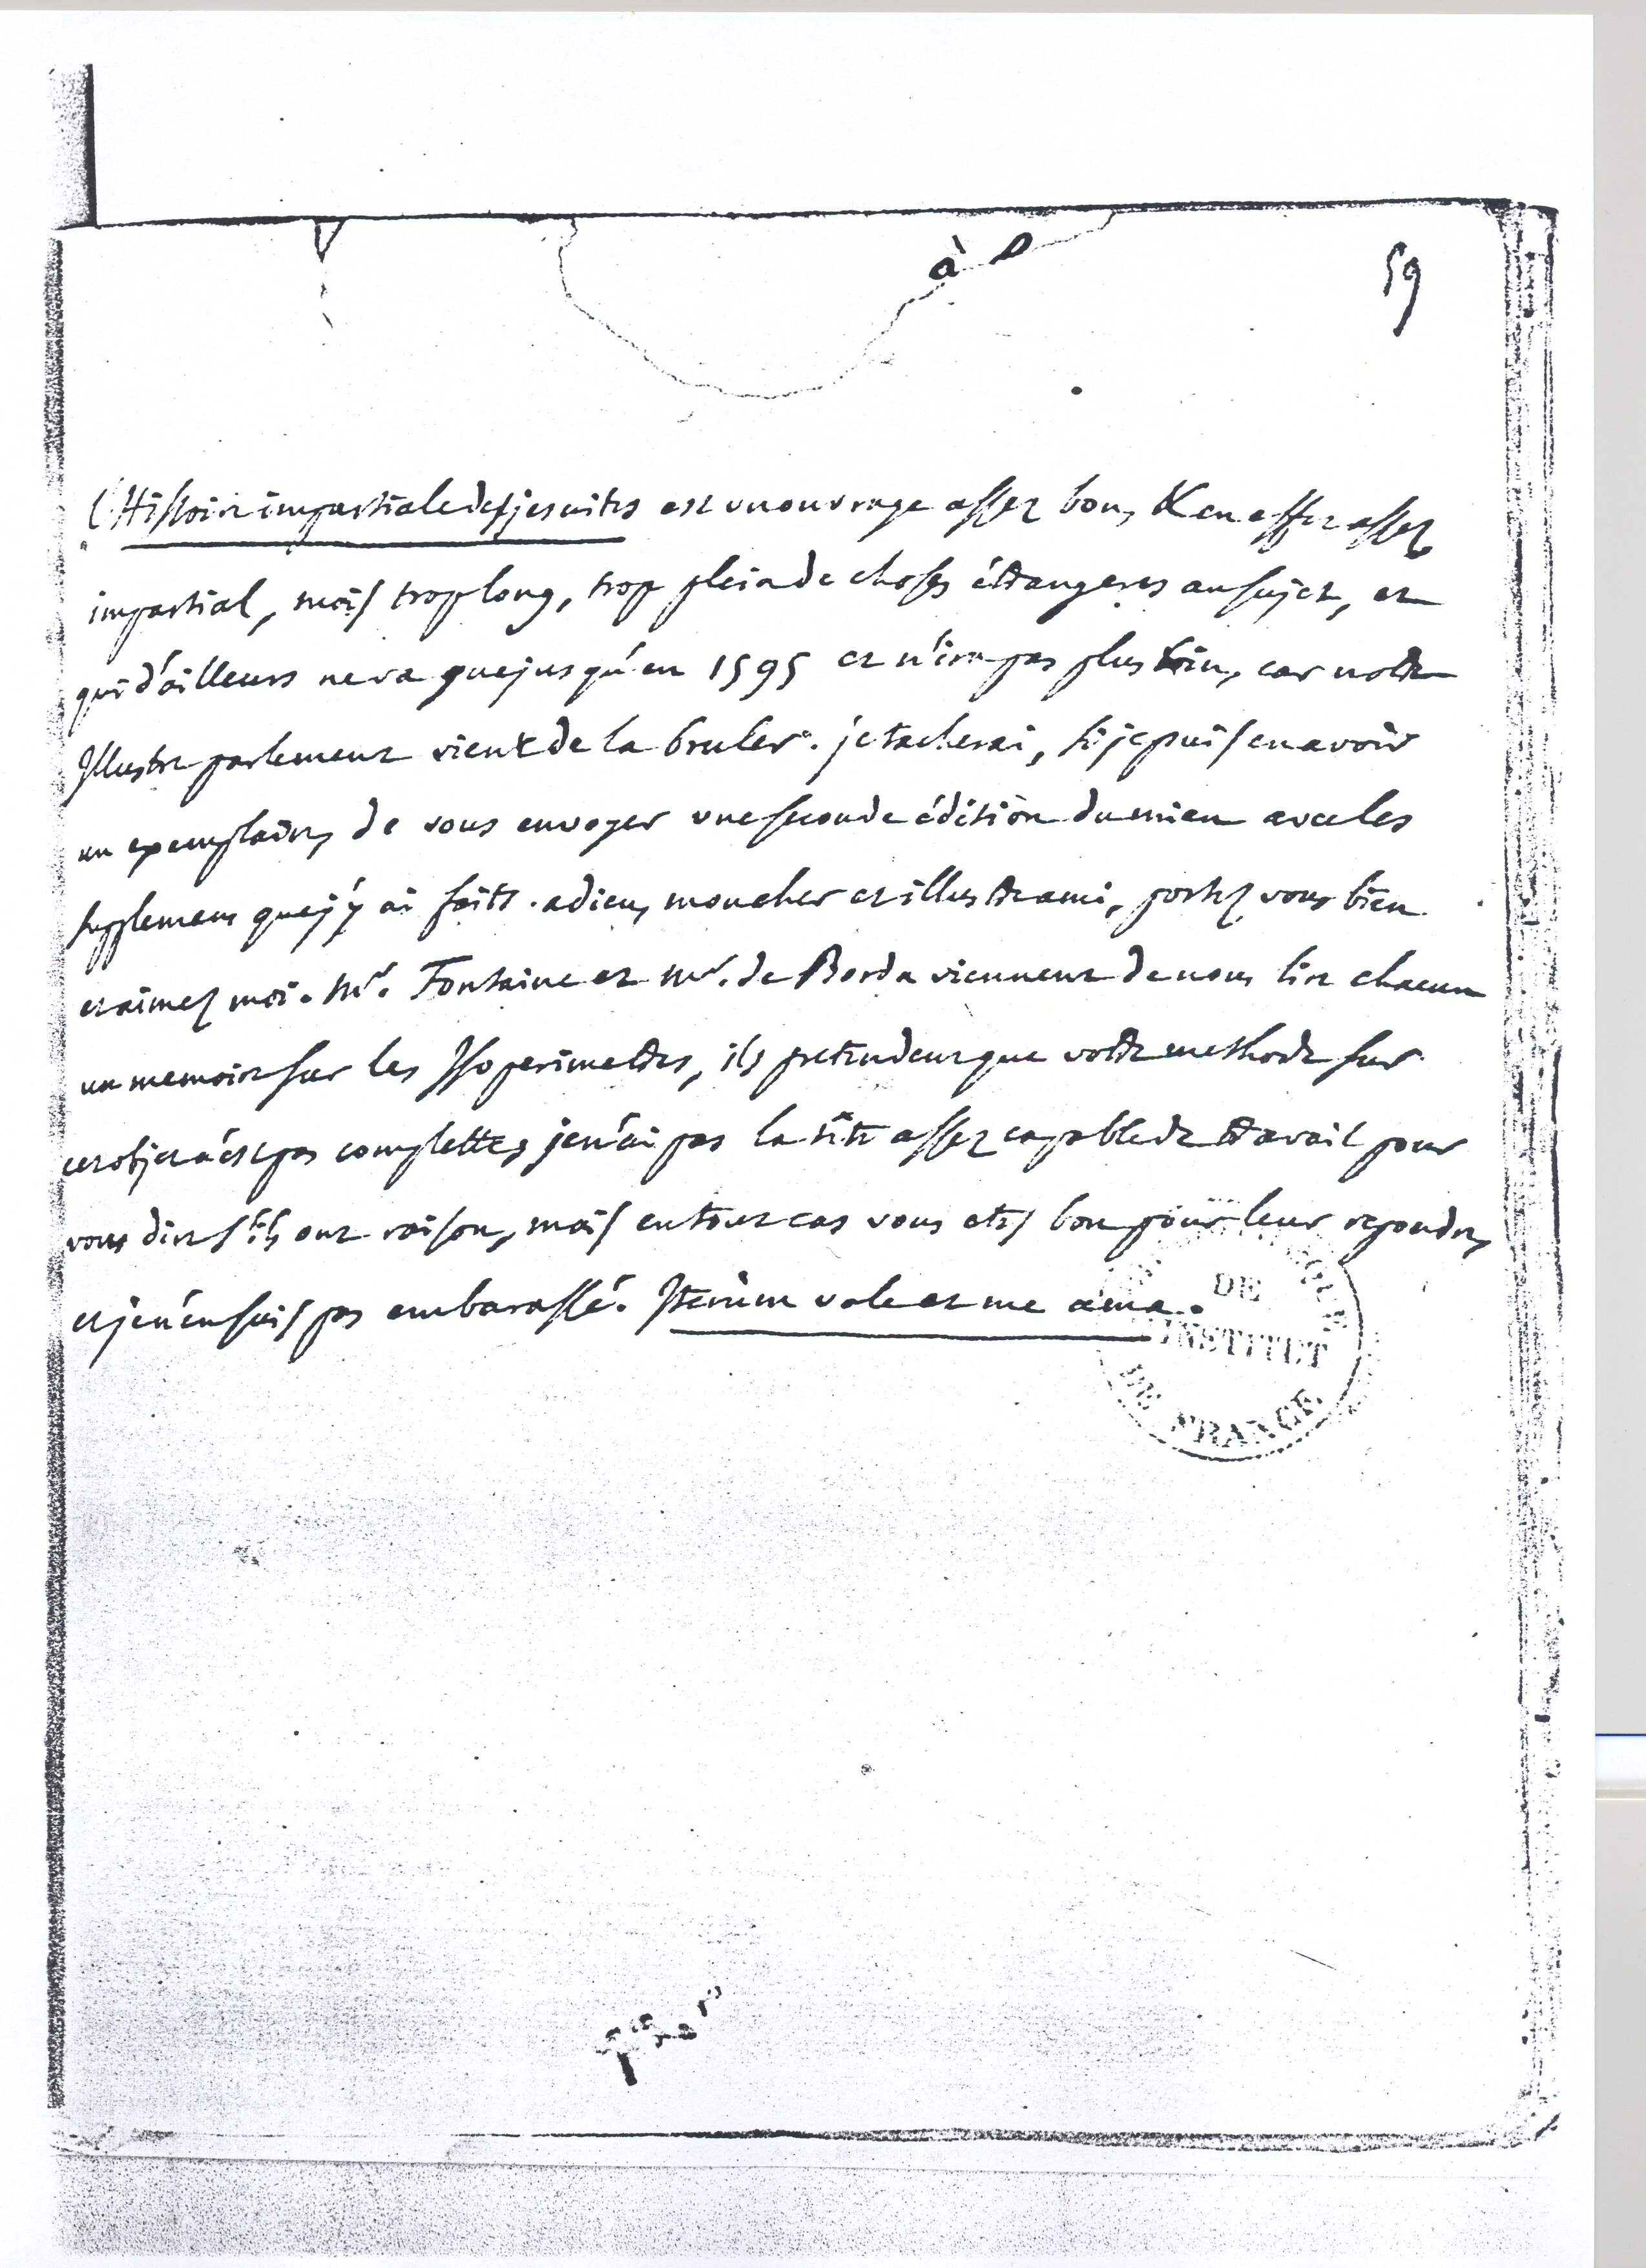 à D
59
l'Histoire impartiale des jesuites est un ouvrage assez bon, & en effet assez
impartial, mais trop long, trop plein de choses étrangeres au sujet, et
qui d'ailleurs ne va que jusqu'en 1595 et n'ira pas plus loin, car notre
Illustre parlement vient de la bruler. je tacherai, si je puis en avoir
un exemplaire, de vous envoyer une seconde édition du mien avec les
supplemens que j'y ai faits. adieu, mon cher et illustre ami, portez vous bien
et aimez moi. Mr. Fontaine et Mr. de Borda viennent de nous lire chacun
un memoire sur les Isoperimetres, ils pretendent que votre methode sur
cet objet n'est pas complette, je n'ai pas la tête assez capable de travail pour
vous dire s'ils ont raison, mais en tout cas vous etes bon pour leur repondre,
et je n'en suis pas embarassé. Iterùm vale et me ama.
DE
INSTITUT
DE FRANCE